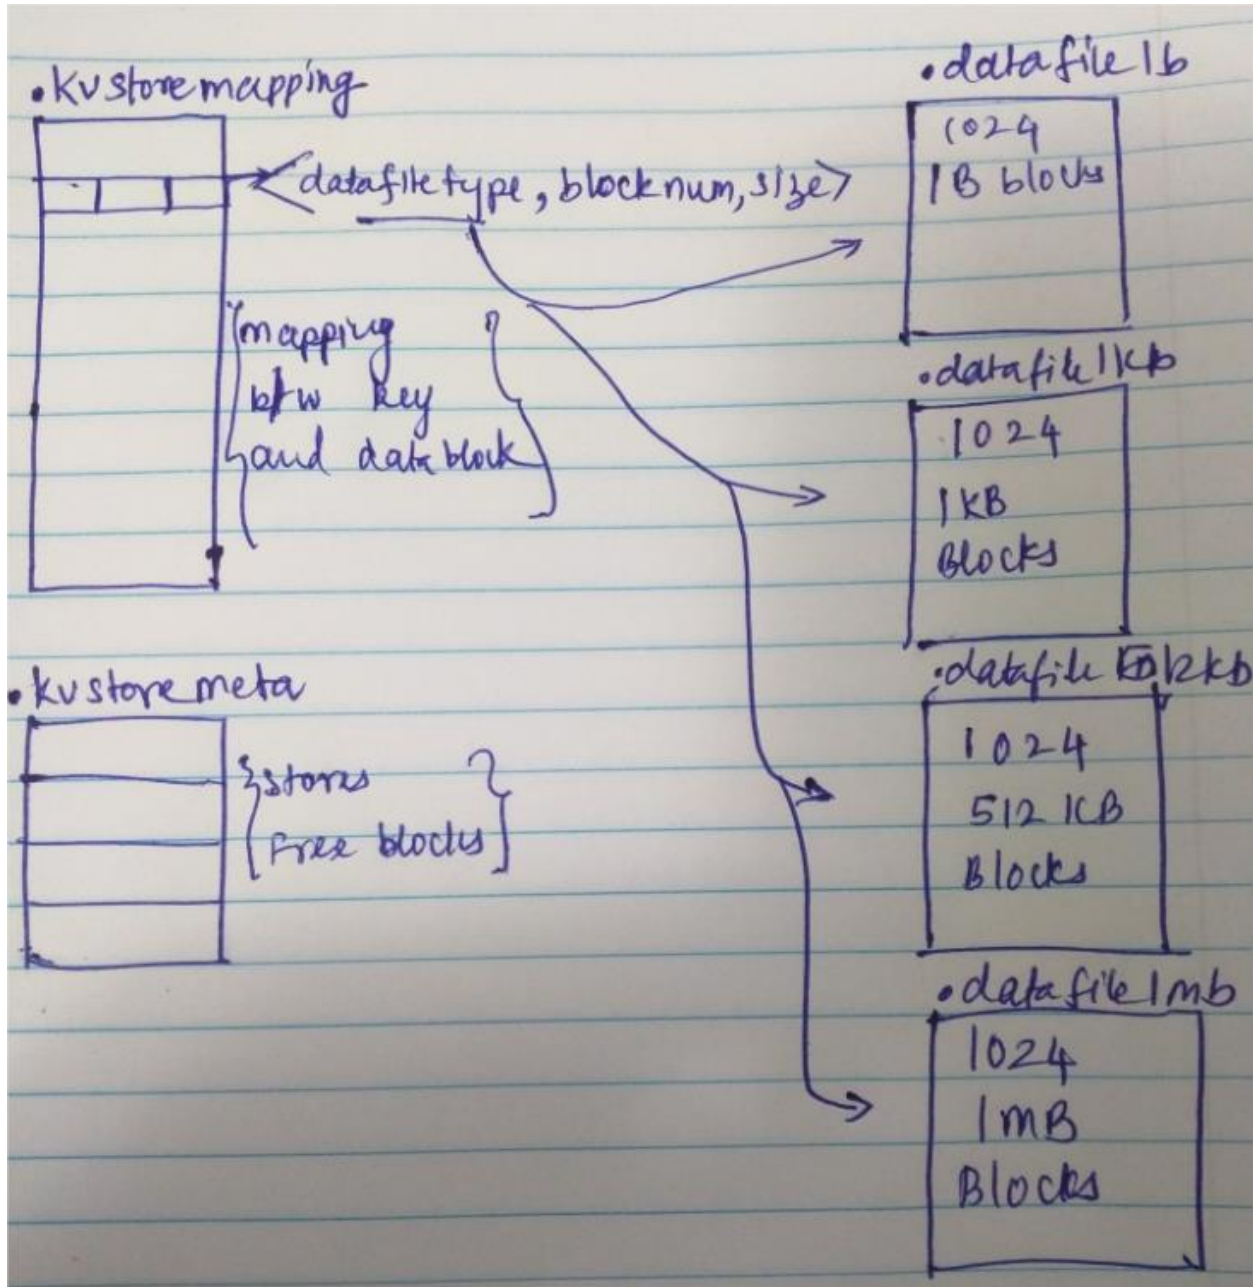 .kvstoremapping
<datafiletype, blocknum, size>
mapping
b/w key
and datablock
.kvstoremeta
stores
Free blocks
.datafile1b
1024
1B blocks
.datafile1kb
1024
1KB
Blocks
.datafile 512kb
1024
512 KB
Blocks
.datafile1mb
1024
1MB
Blocks